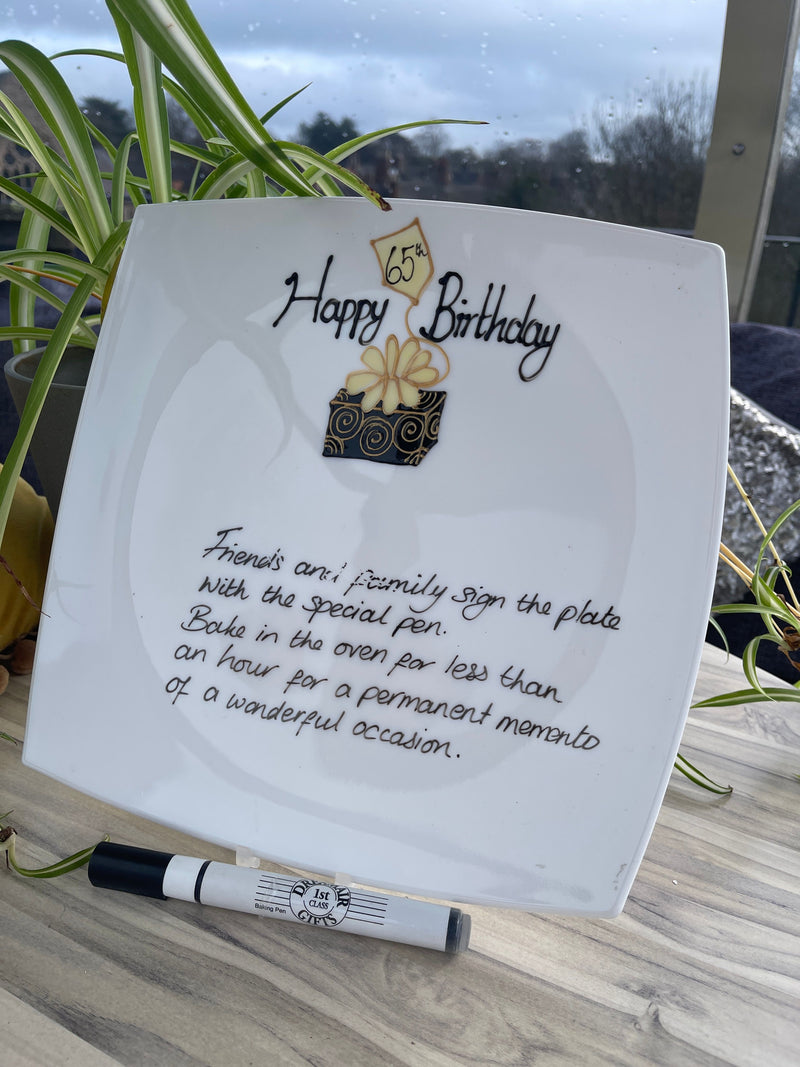 65th
Happy Birthday
Friends and family sign the plate
with the special pen.
Bake in the oven for less than
an hour for a permanent memento
of a wonderful occasion.
Baking Pen
1st
CLASS
GIFTS